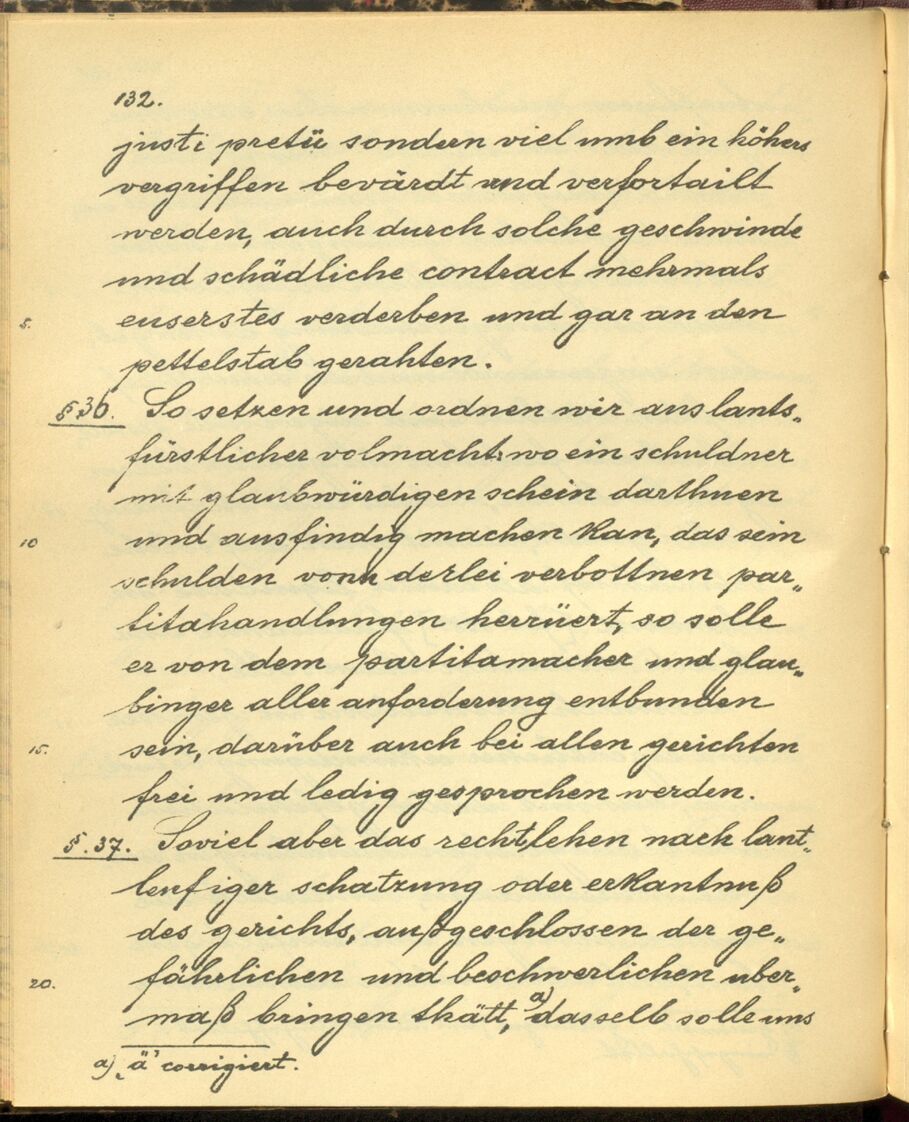 132.
justi pretii sondern viel umb ein höhers
vergriffen bevärdt und verfortailt
werden, auch durch solche geschwinde
und schädliche contract mehrmals
5. euserstes verderben und gar an den
pettelstab gerahten.
§36. So setzen und ordnen wir aus lants„
fürstlicher volmacht, wo ein schuldner
mit glaubwürdigen schein darthuen
10 und ausfindig machen kan, das sein
schulden vonn derlei verbottnen par„
titahandlungen herrüert, so solle
er von dem partitamacher und glau„
binger aller anforderung entbunden
15. sein, darüber auch bei allen gerichten
frei und ledig gesprochen werden.
§. 37. Soviel aber das recht, lehen nach lant„
leufiger schatzung oder erkantnuß
des gerichts, außgeschlossen der ge„
20. fährlichen und beschwerlichen uber„
maß bringen thätt, a) dasselb solle uns
a) „ä“ corrigiert.